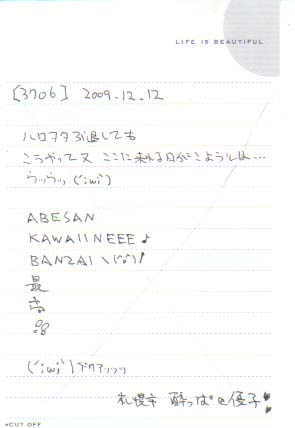 LIFE IS BEAUTIFUL
[3706] 2009.12.12
ハロヲタぶ退しても
こうやって又 ここに来れる日がこようとは…
ウッウッ (´;ω;`)
ABESAN
KAWAII NEEE♪
BANZAI \(^o^)/
最
高
(´;ω;`)
札幌市 酔っぱ@優子
CUT OFF